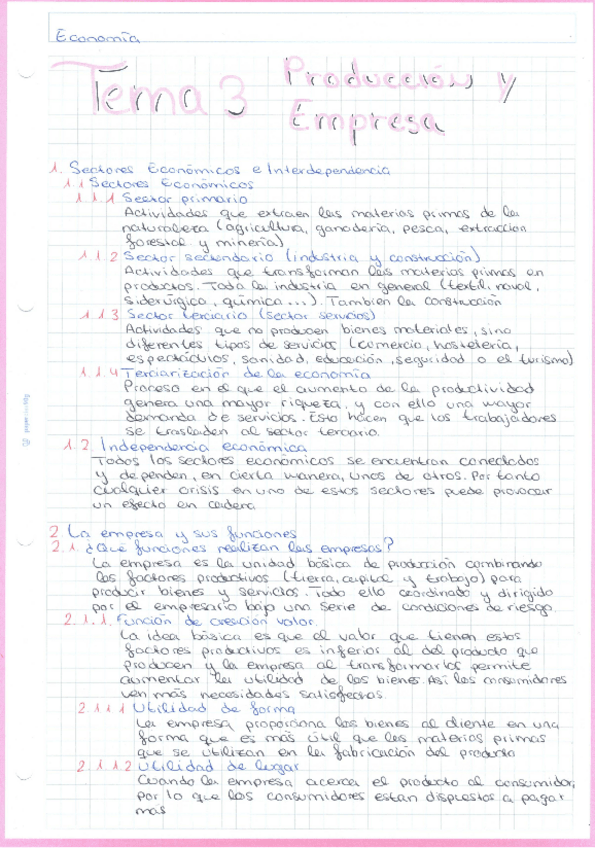 Economía
Tema 3 Producción y
Empresa
1. Sectores Económicos e Interdependencia
1.1 Sectores Económicos
1.1.1 Sector primario
Actividades que extraen las materias primas de la
naturaleza (agricultura, ganadería, pesca, extraccion
forestal y minería)
1.1.2 Sector sectendario (industria y construcción)
Actividades que transforman las materias primas en
productos. Toda la industria en general (textil, naval,
siderúrgico, química...). Tambien la construcción
1.1.3 Sector terciario (sector servcios)
Actividades que no producen bienes materiales, sino
diferentes tipos de servicios (comercio, hostelería,
espectáculos, sanidad, educación, seguridad o el turismo)
1.1.4 Terciarización de la economía
Proceso en el que el aumento de la productividad
genera una mayor riqueza, y con ello una mayor
demanda de servicios. Esto hacen que los trabajadores
se trasladen al sector terciario.
1.2. Independencia económica
Todos los sectores económicos se encuentran conectados
y dependen, en cierta manera, unos de otros. Por tanto
cualquier crisis en uno de estos sectores puede provocar
un efecto en cadena.
2 La empresa y sus funciones
2.1. ¿Qué funciones realizan las empresas?
La empresa es la unidad básica de producción combinando
los factores productivos (tierra, capital y trabajo) para
producir bienes y servicios. Todo ello coordinado y dirigido
por el empresario bajo una serie de condiciones de riesgo.
2.1.1. Función de creación valor.
La idea básica es que el valor que tienen estos
factores productivos es inferior al del producto que
producen y la empresa al transformarlos permite
aumentar la utilidad de los bienes. Así los consumidores
ven más necesidades satisfechas.
2.1.1.1 Utilidad de forma
La empresa proporciona los bienes al cliente en una
forma que es más útil que las materias primas
que se utilizan en la fabricación del producto
2.1.1.2 Utilidad de lugar
Cuando la empresa acerca el producto al consumidor,
por lo que los consumidores estan dispuestos a pagar
mas